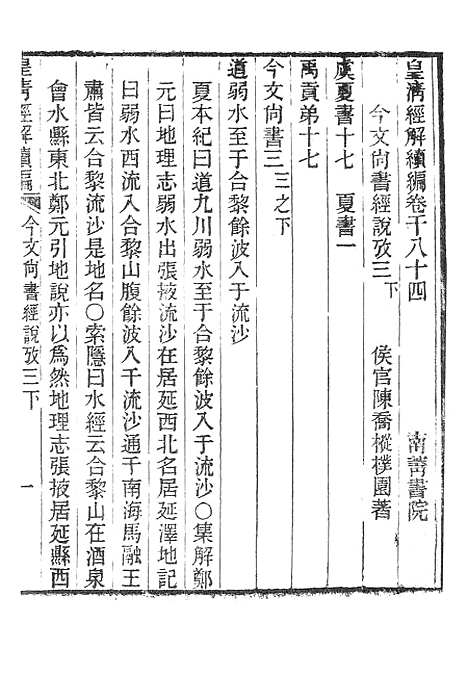 皇清經解續編卷千八十四 南菁書院
今文尚書經說攷三下 侯官陳喬樅樸園著
虞夏書十七 夏書一
禹貢弟十七
今文尚書三 三之下
道弱水至于合黎餘波入于流沙
夏本紀曰道九川弱水至于合黎餘波入于流沙○集解鄭
元曰地理志弱水出張掖流沙在居延西北名居延澤地記
曰弱水西流入合黎山腹餘波入于流沙通于南海馬融王
肅皆云合黎流沙是地名○索隱曰水經云合黎山在酒泉
會水縣東北鄭元引地說亦以爲然地理志張掖居延縣西
皇清經解續編 今文尚書經說攷三下 一